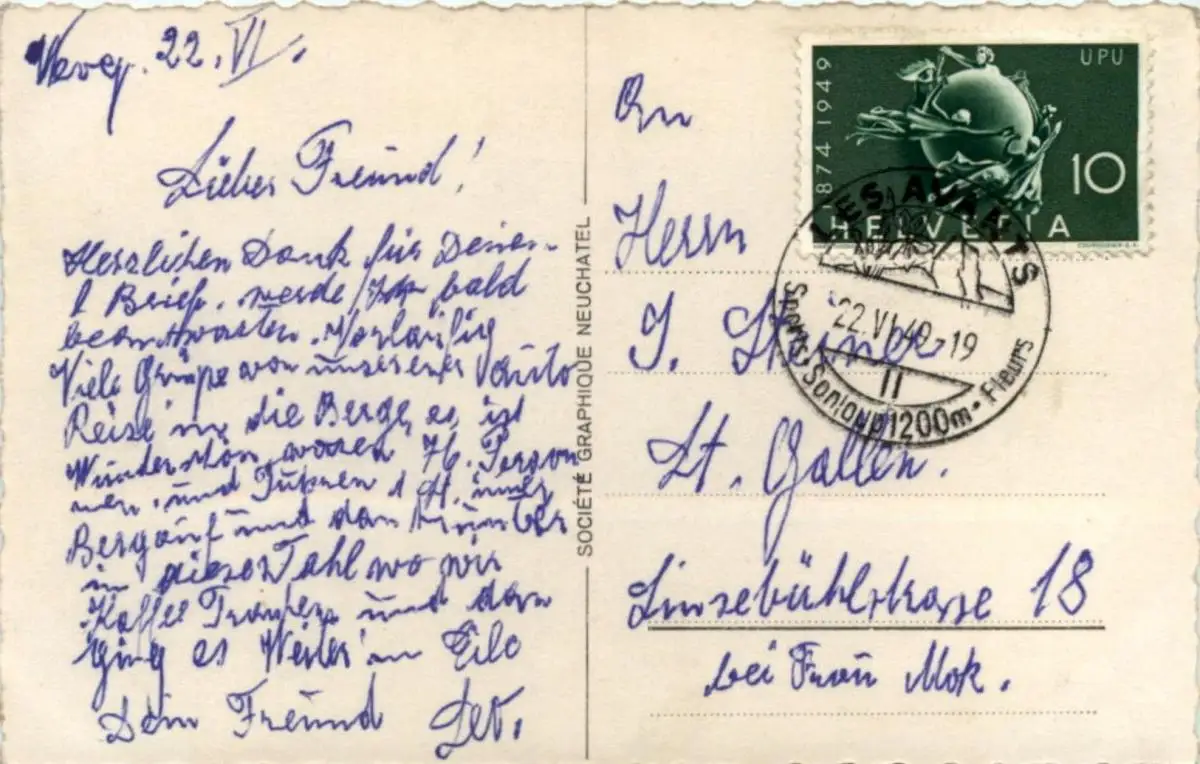 Vevey. 22. VI.
Lieber Freund!
Herzlichen Dank für Deinen
l Brief. werde Ich bald
beantworten. Vorläufig
Viele Grüße von unserer Auto
Reise in die Berge, es ist
Wunderschön waren 76. Person
nen. und Fuhren 1 St. immer
Bergauf und dan Hinunter
in dieses Tahl wo wir
Kaffee Tranken und dan
ging es Weiter im
Dein Freund
SOCIÉTÉ GRAPHIQUE NEUCHATEL
An
Herrn
J. Steiner
St. Gallen.
Linsebühlstrasse 18
bei Frau Mok.
1874 1949
UPU
10
HELVETIA
COURVOISIER S.A.
LES AVANTS
22.VI.49.-19
II
Sports · Sonloup 1200m · Fleurs